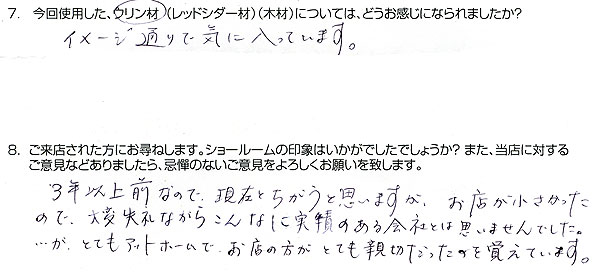 7. 今回使用した、ウリン材(レッドシダー材)(木材)については、どうお感じになられましたか?
イメージ通りで気に入っています。
8. ご来店された方にお尋ねします。ショールームの印象はいかがでしたでしょうか? また、当店に対する
ご意見などありましたら、忌憚のないご意見をよろしくお願いを致します。
3年以上前なので、現在とちがうと思いますが、お店が小さかった
ので、大変失礼ながらこんなに実績のある会社とは思いませんでした。
…が、とてもアットホームで、お店の方がとても親切だったのを覚えています。